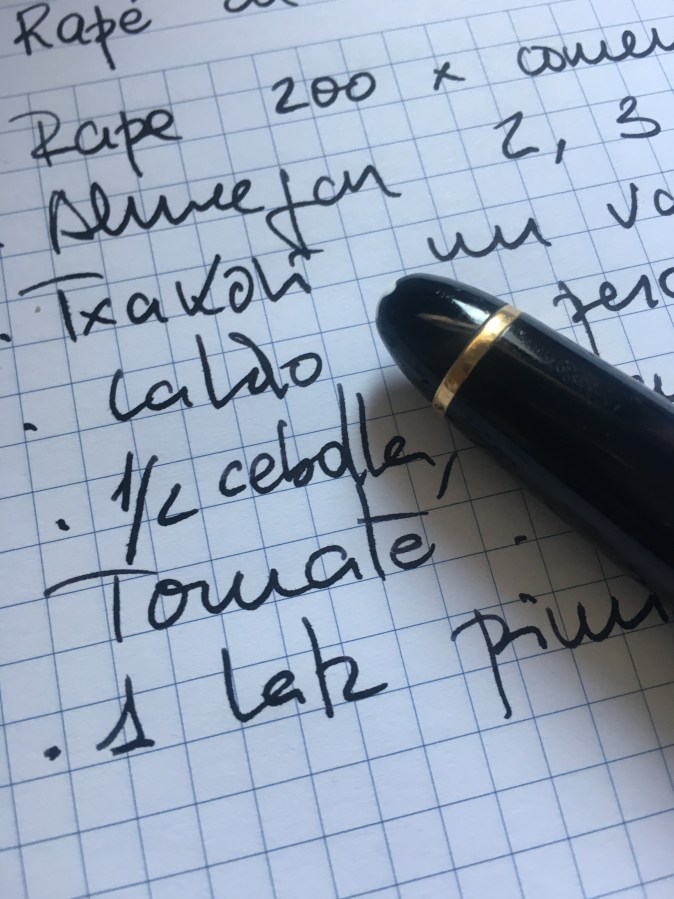 Rapé
Rape 200 x comen
Almejan 2, 3
. Txakoli un va
. caldo
. 1/2 cebolla,
Tomate .
. 1 lata pim